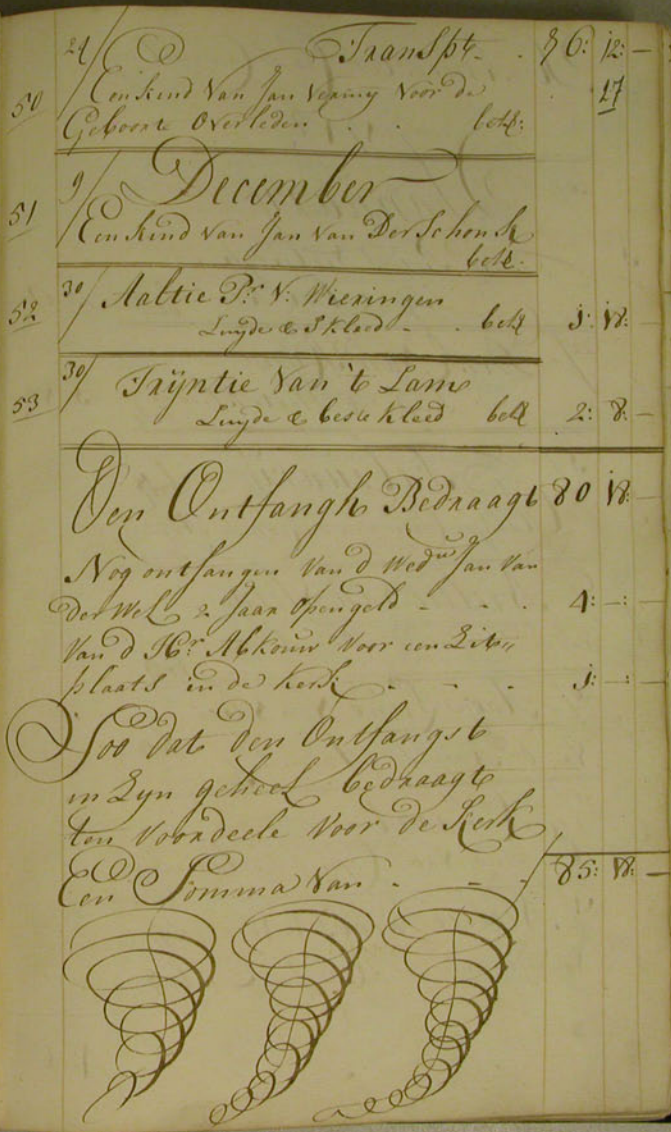 24/ Transpt. 76: 12: —
50 Een kind van Jan Vening voor de 17
Geboorte Overleden bett:
December
51 9/ Een kind van Jan van Der Schonk
bett.
52 30/ Aaltie Pr. V: Wieringen
Luyde & Kleed - . bett 1: 18: —
53 30/ Trijntie Van 't Lam
Luyde & beste Kleed bett 2: 8: —
Den Ontfangh Bedraagt 80 18: —
Nog ontfangen van d Wedw Jan Van
der Wel 2 Jaar Opengeld - . . 4: —: —
Van d Hr. Abkouw voor een Zit„
plaats in de Kerk - - . 1: —: —
Soo dat Den Ontfangst
in Zyn geheel bedraagt
ten Voordeele voor de Kerk
Een Somma Van - - . 85: 18: —